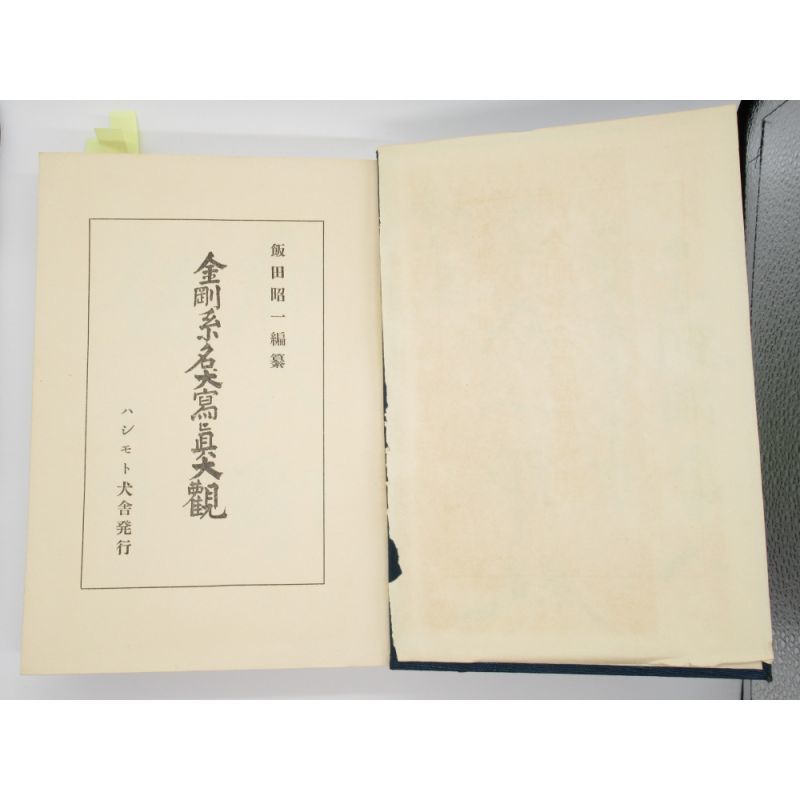 飯田昭一編纂
金剛系名犬寫眞大觀
ハシモト犬舎発行